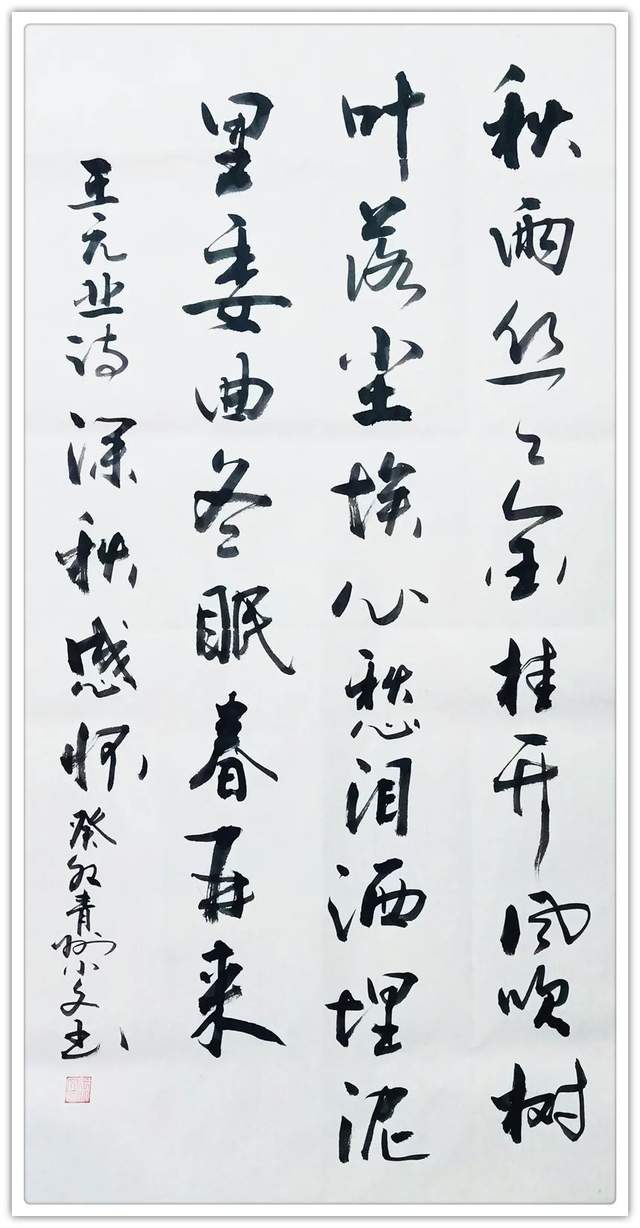 秋雨丝々金桂开风吹树
叶落尘埃心愁泪洒埋泥
里委曲冬眠春再来
王元业诗深秋感怀癸卯青州小文书